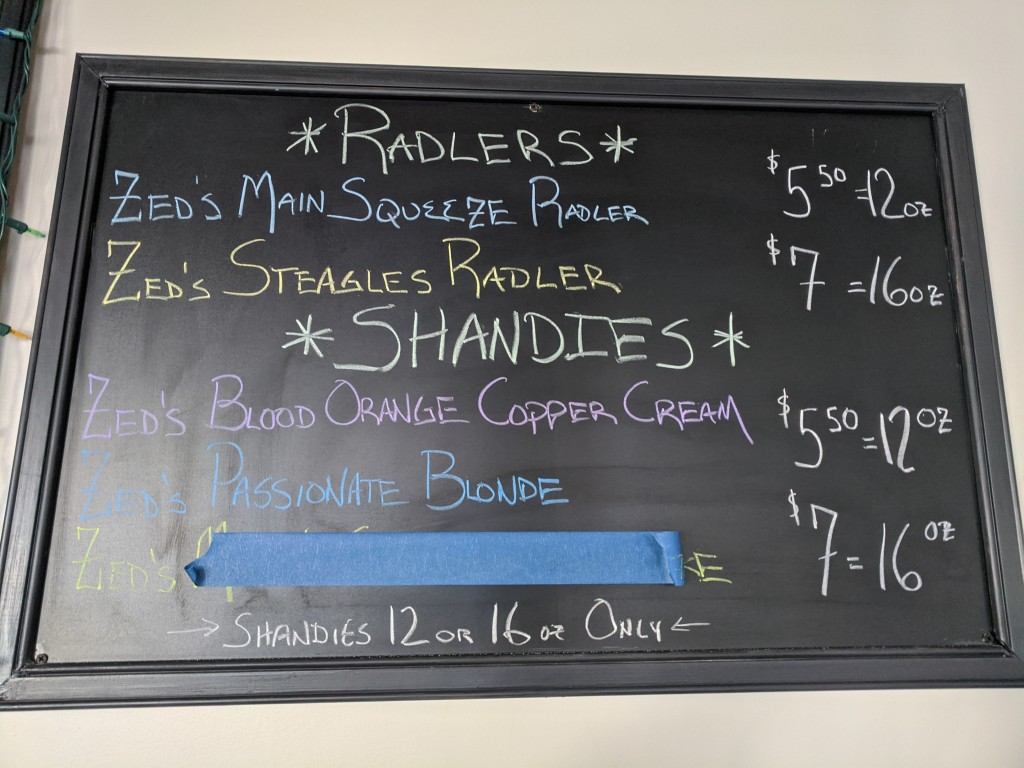 *RADLERS*
ZED'S MAIN SQUEEZE RADLER
$5.50=12oz
ZED'S STEAGLES RADLER
$7=16oz
*SHANDIES*
ZED'S BLOOD ORANGE COPPER CREAM
$5.50=12oz
ZED'S PASSIONATE BLONDE
$7=16oz
ZED'S
→SHANDIES 12 OR 16 oz ONLY←